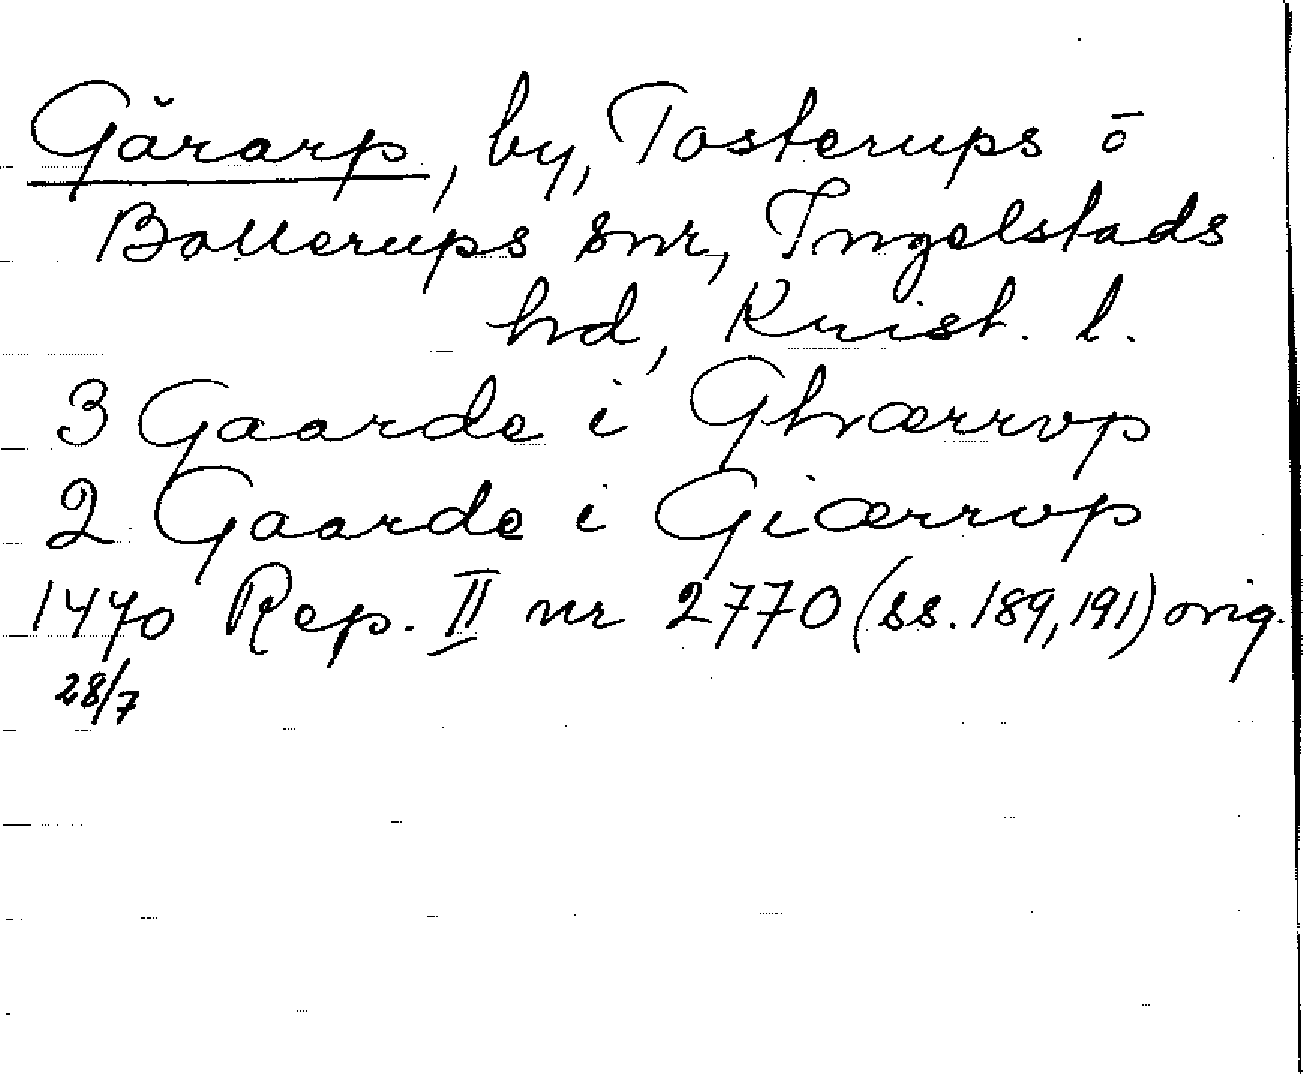 Gärarp, by, Tosterups o
Bollerups snr, Ingelstads
hd, Krist. l.
3 Gaarde i Ghrærrvp
2 Gaarde i Giærrvp
1470 Rep. II nr 2770 (ss. 189, 191) orig.
28/7